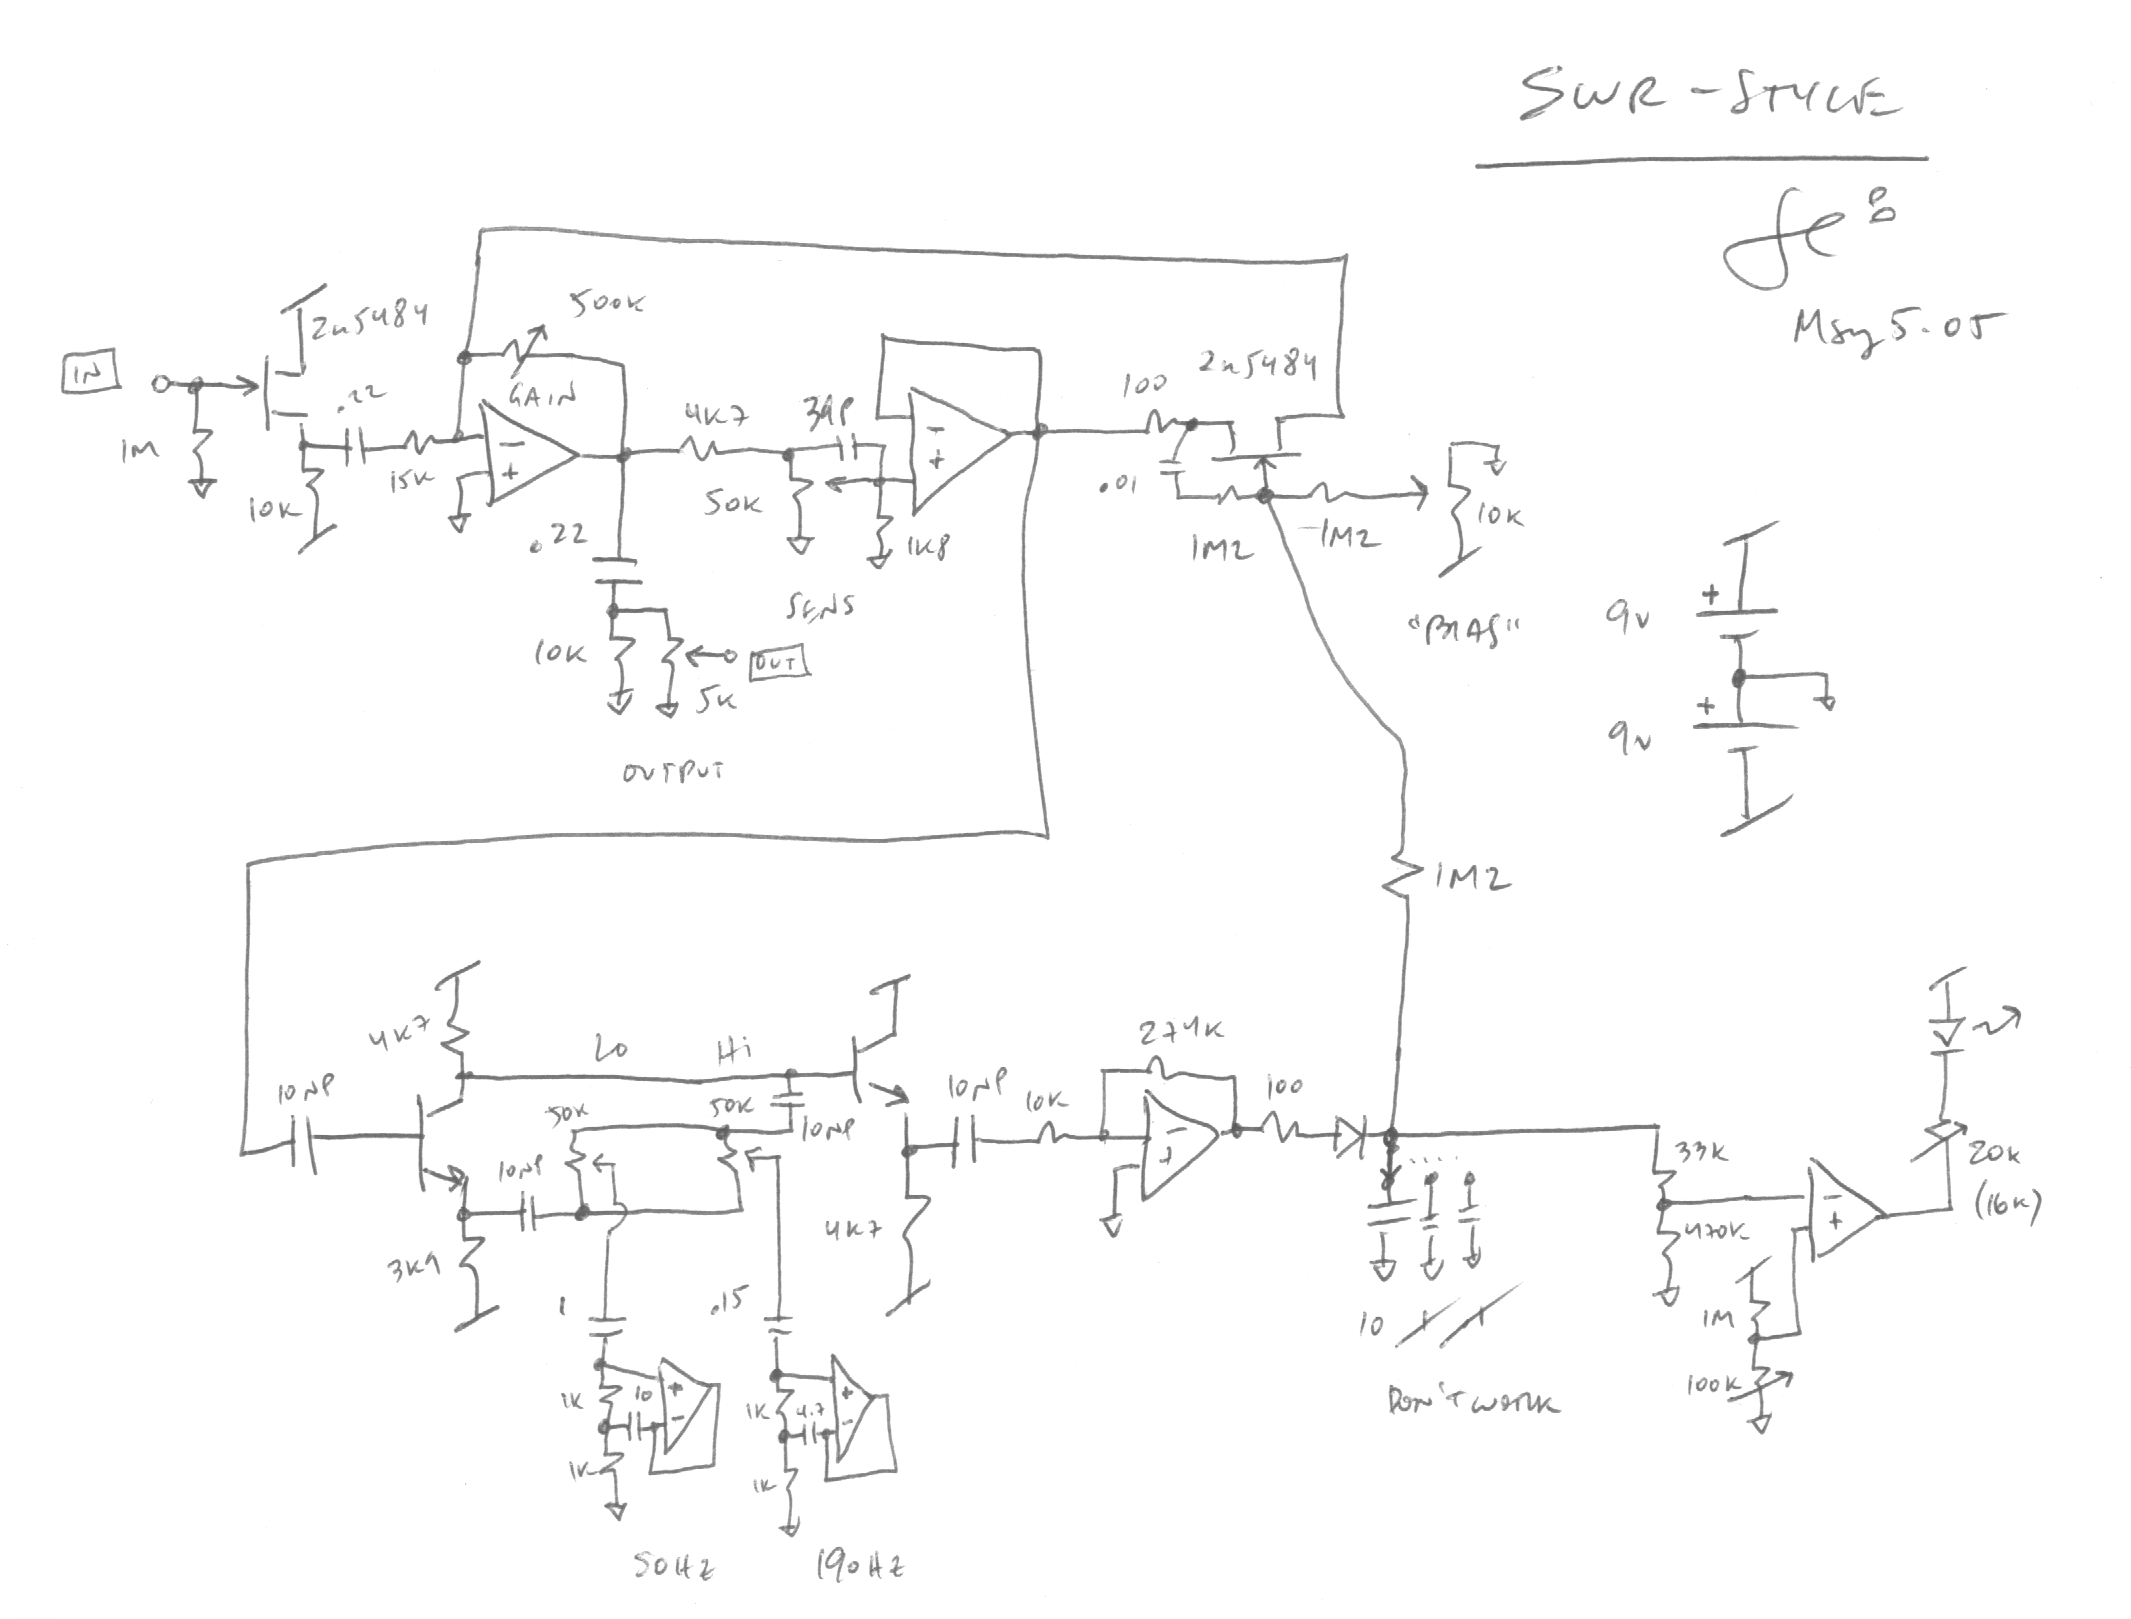 SWR-STYLE
May 5.05
2n5484
500k
IN
.22
GAIN
4K7
39P
100
2n5484
1M
10K
15K
50K
.01
1K8
1M2
1M2
10K
.22
SENS
"BIAS"
9V
10K
OUT
5K
9V
OUTPUT
1M2
4K7
Lo
Hi
10NP
50K
50K
10NP
10NP
10K
274K
100
10NP
33K
20K
(16K)
3K9
4K7
470K
1
.15
10
1M
100K
DON'T WORK
1K
10
1K
4.7
1K
1K
50HZ
190HZ